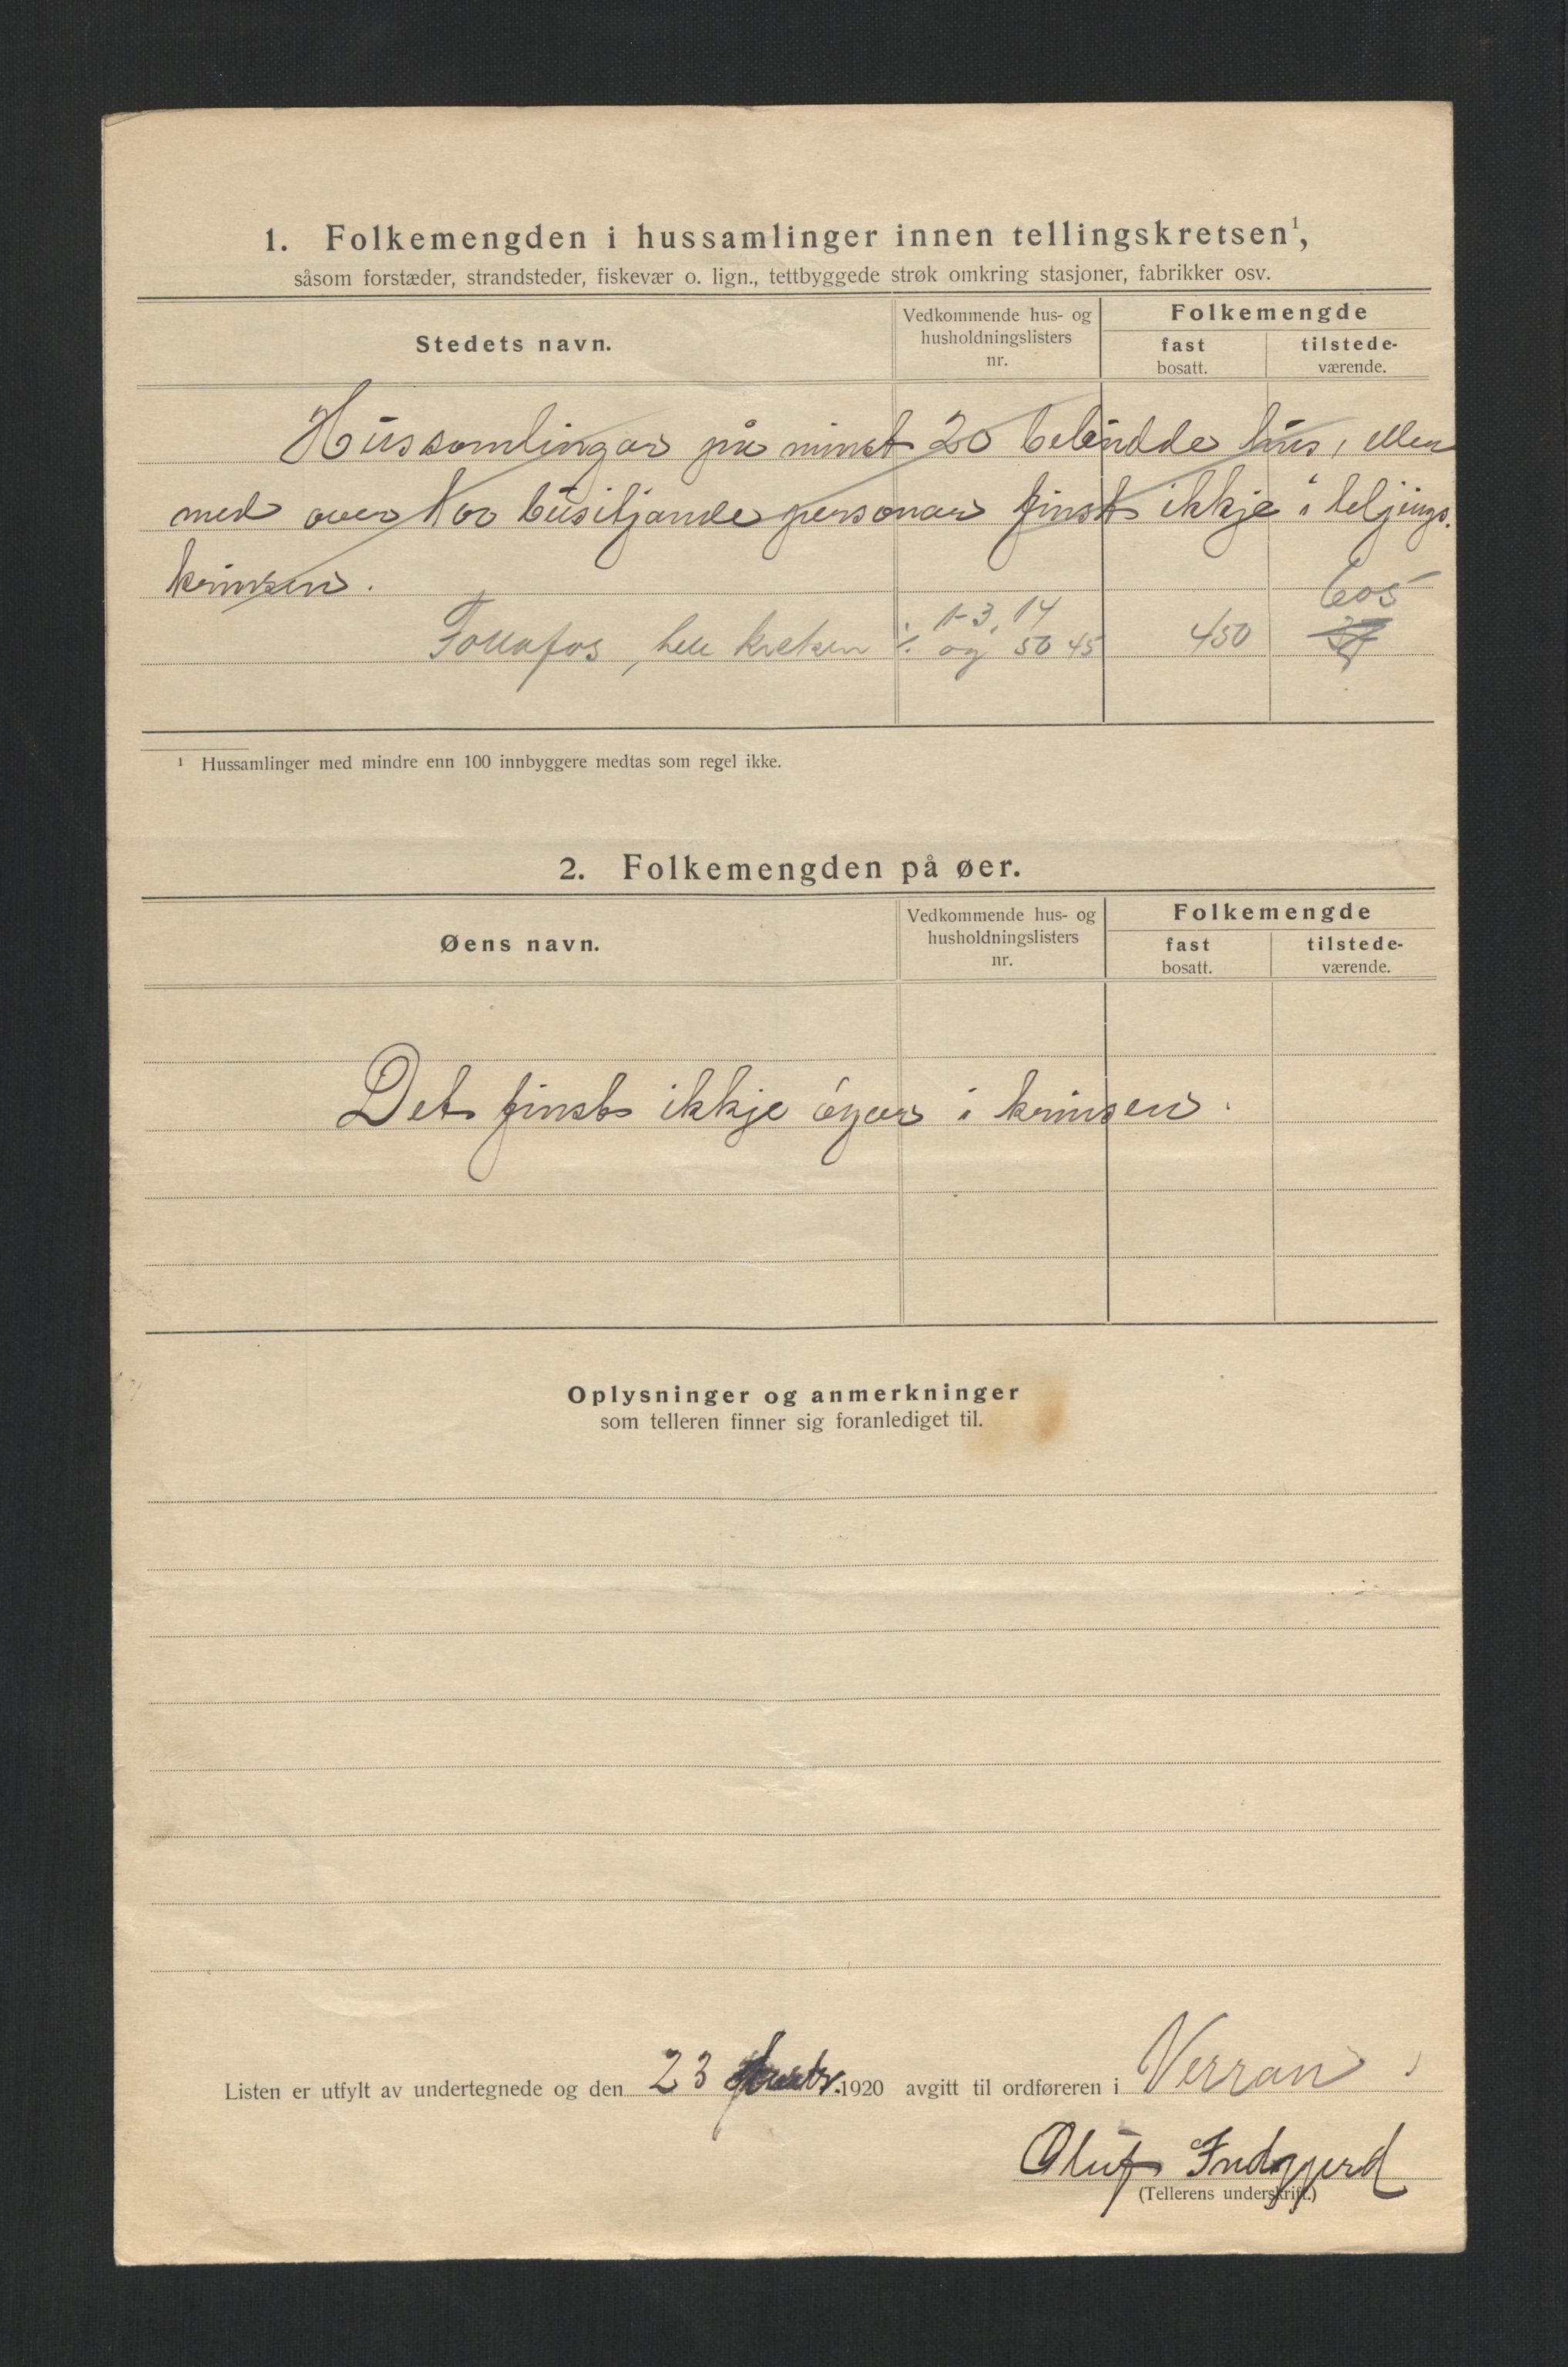 1. Folkemengden i hussamlinger innen tellingskretsen¹,
såsom forstæder, strandsteder, fiskevær o. lign., tettbyggede strøk omkring stasjoner, fabrikker osv.
Stedets navn.
Vedkommende hus- og
husholdningslisters
nr.
Folkemengde
fast
bosatt.
tilstede-
værende.
Hussamlingar på minst 20 bebudde hus, eller
med over 100 busitjande personar finst ikkje i teljings-
krinsen.
Follafos, hele kretsen ÷ 1-3, 14
og 50 45
450
605
¹ Hussamlinger med mindre enn 100 innbyggere medtas som regel ikke.
2. Folkemengden på øer.
Øens navn.
Vedkommende hus- og
husholdningslisters
nr.
Folkemengde
fast
bosatt.
tilstede-
værende.
Det finst ikkje øyar i krinsen.
Oplysninger og anmerkninger
som telleren finner sig foranlediget til.
Listen er utfylt av undertegnede og den 23 1920 avgitt til ordføreren i Verran
Oluf Indgjerd
(Tellerens underskrift.)